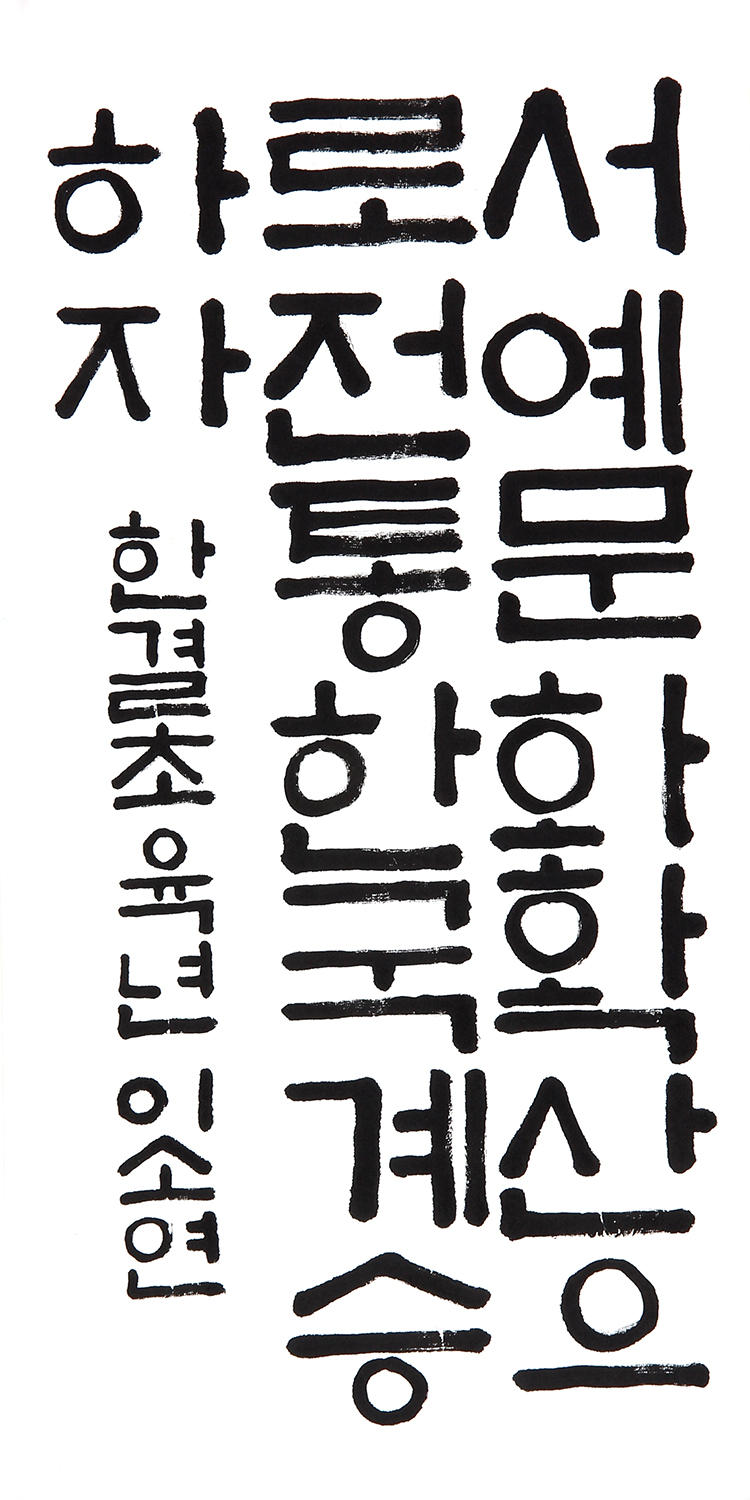 서예문화확산으
로전통한국계승
하자
한결초 육년 이소연